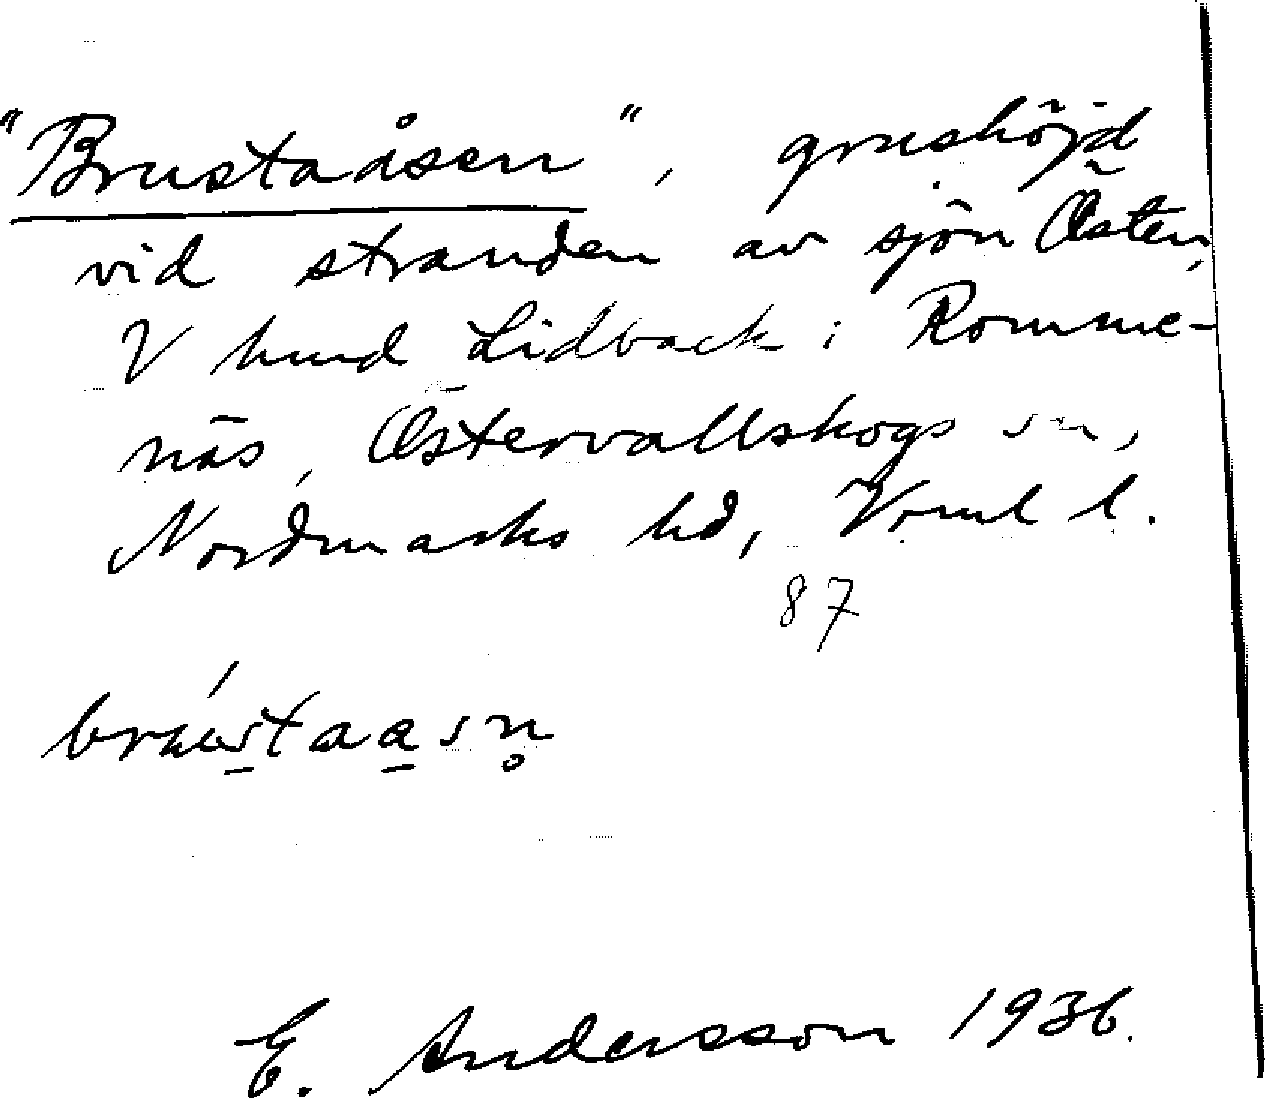 "Brustaåsen", grushöjd
vid stranden av sjön Östen,
V hund Lidback i Romme-
näs, Östervallskogs sn,
Nordmarks hd, Vrml l.
87
E. Andersson 1936.